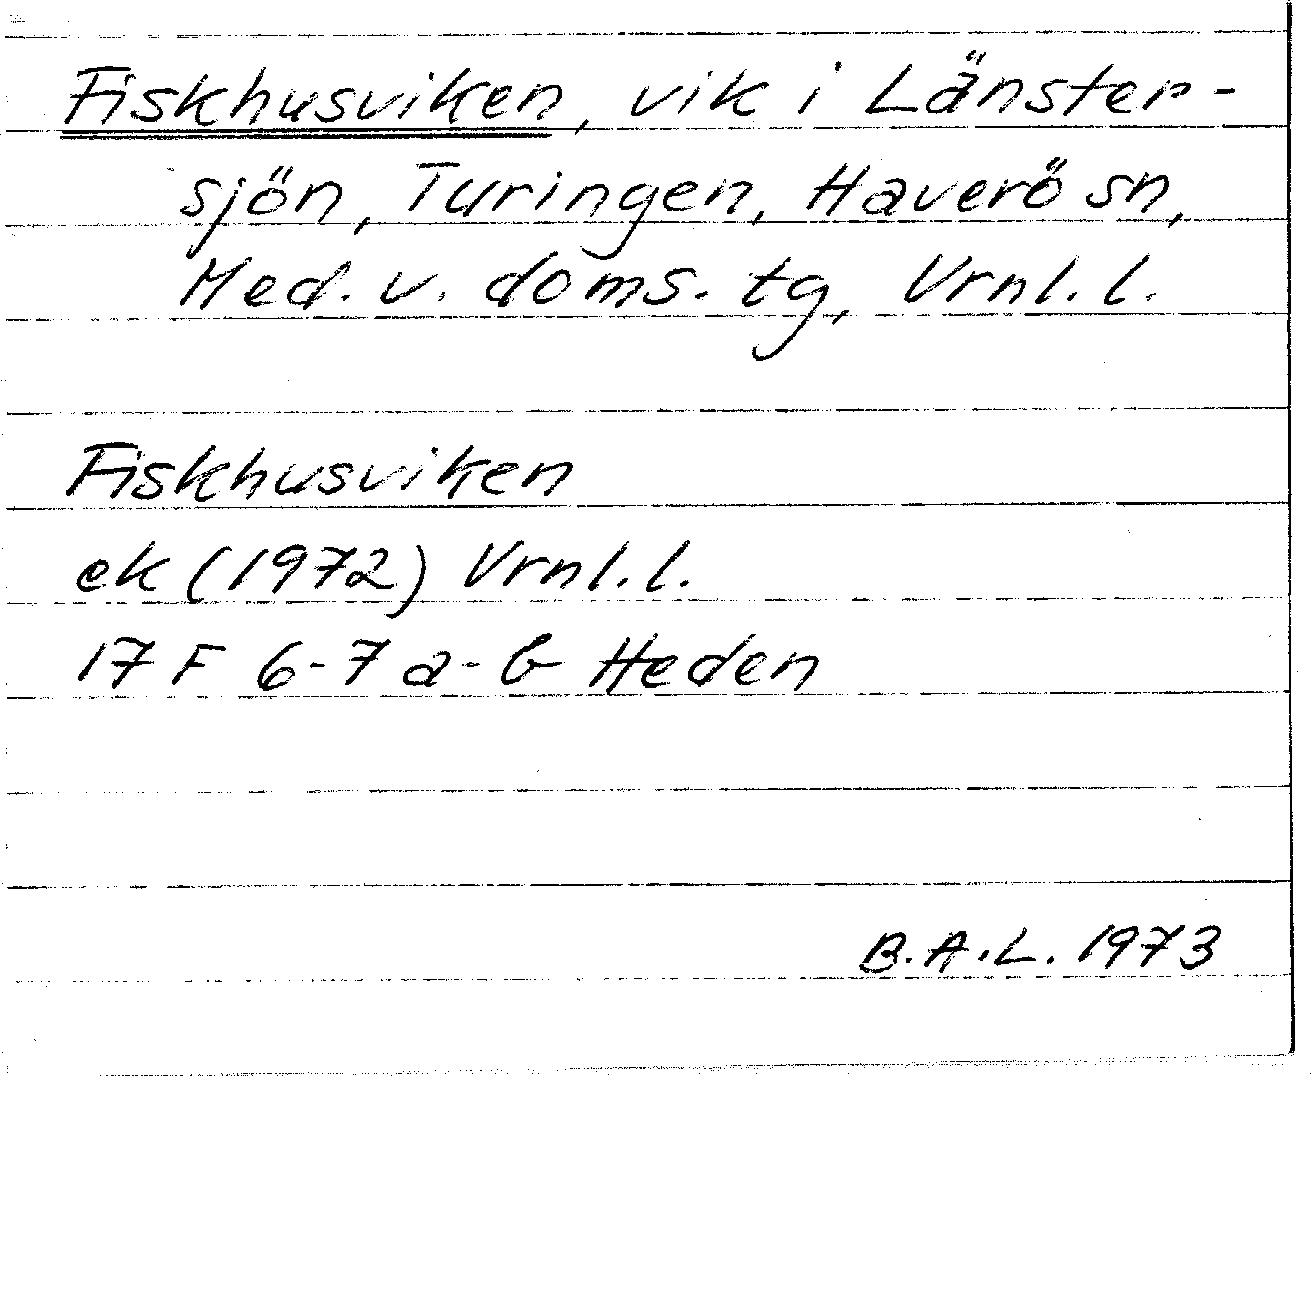 Fiskhusviken, vik i Länster-
sjön, Turingen, Haverö sn,
Med. v. doms. tg, Vrnl. l.
Fiskhusviken
ek (1972) Vrnl. l.
17 F 6-7 a-b Heden
B.A.L. 1973